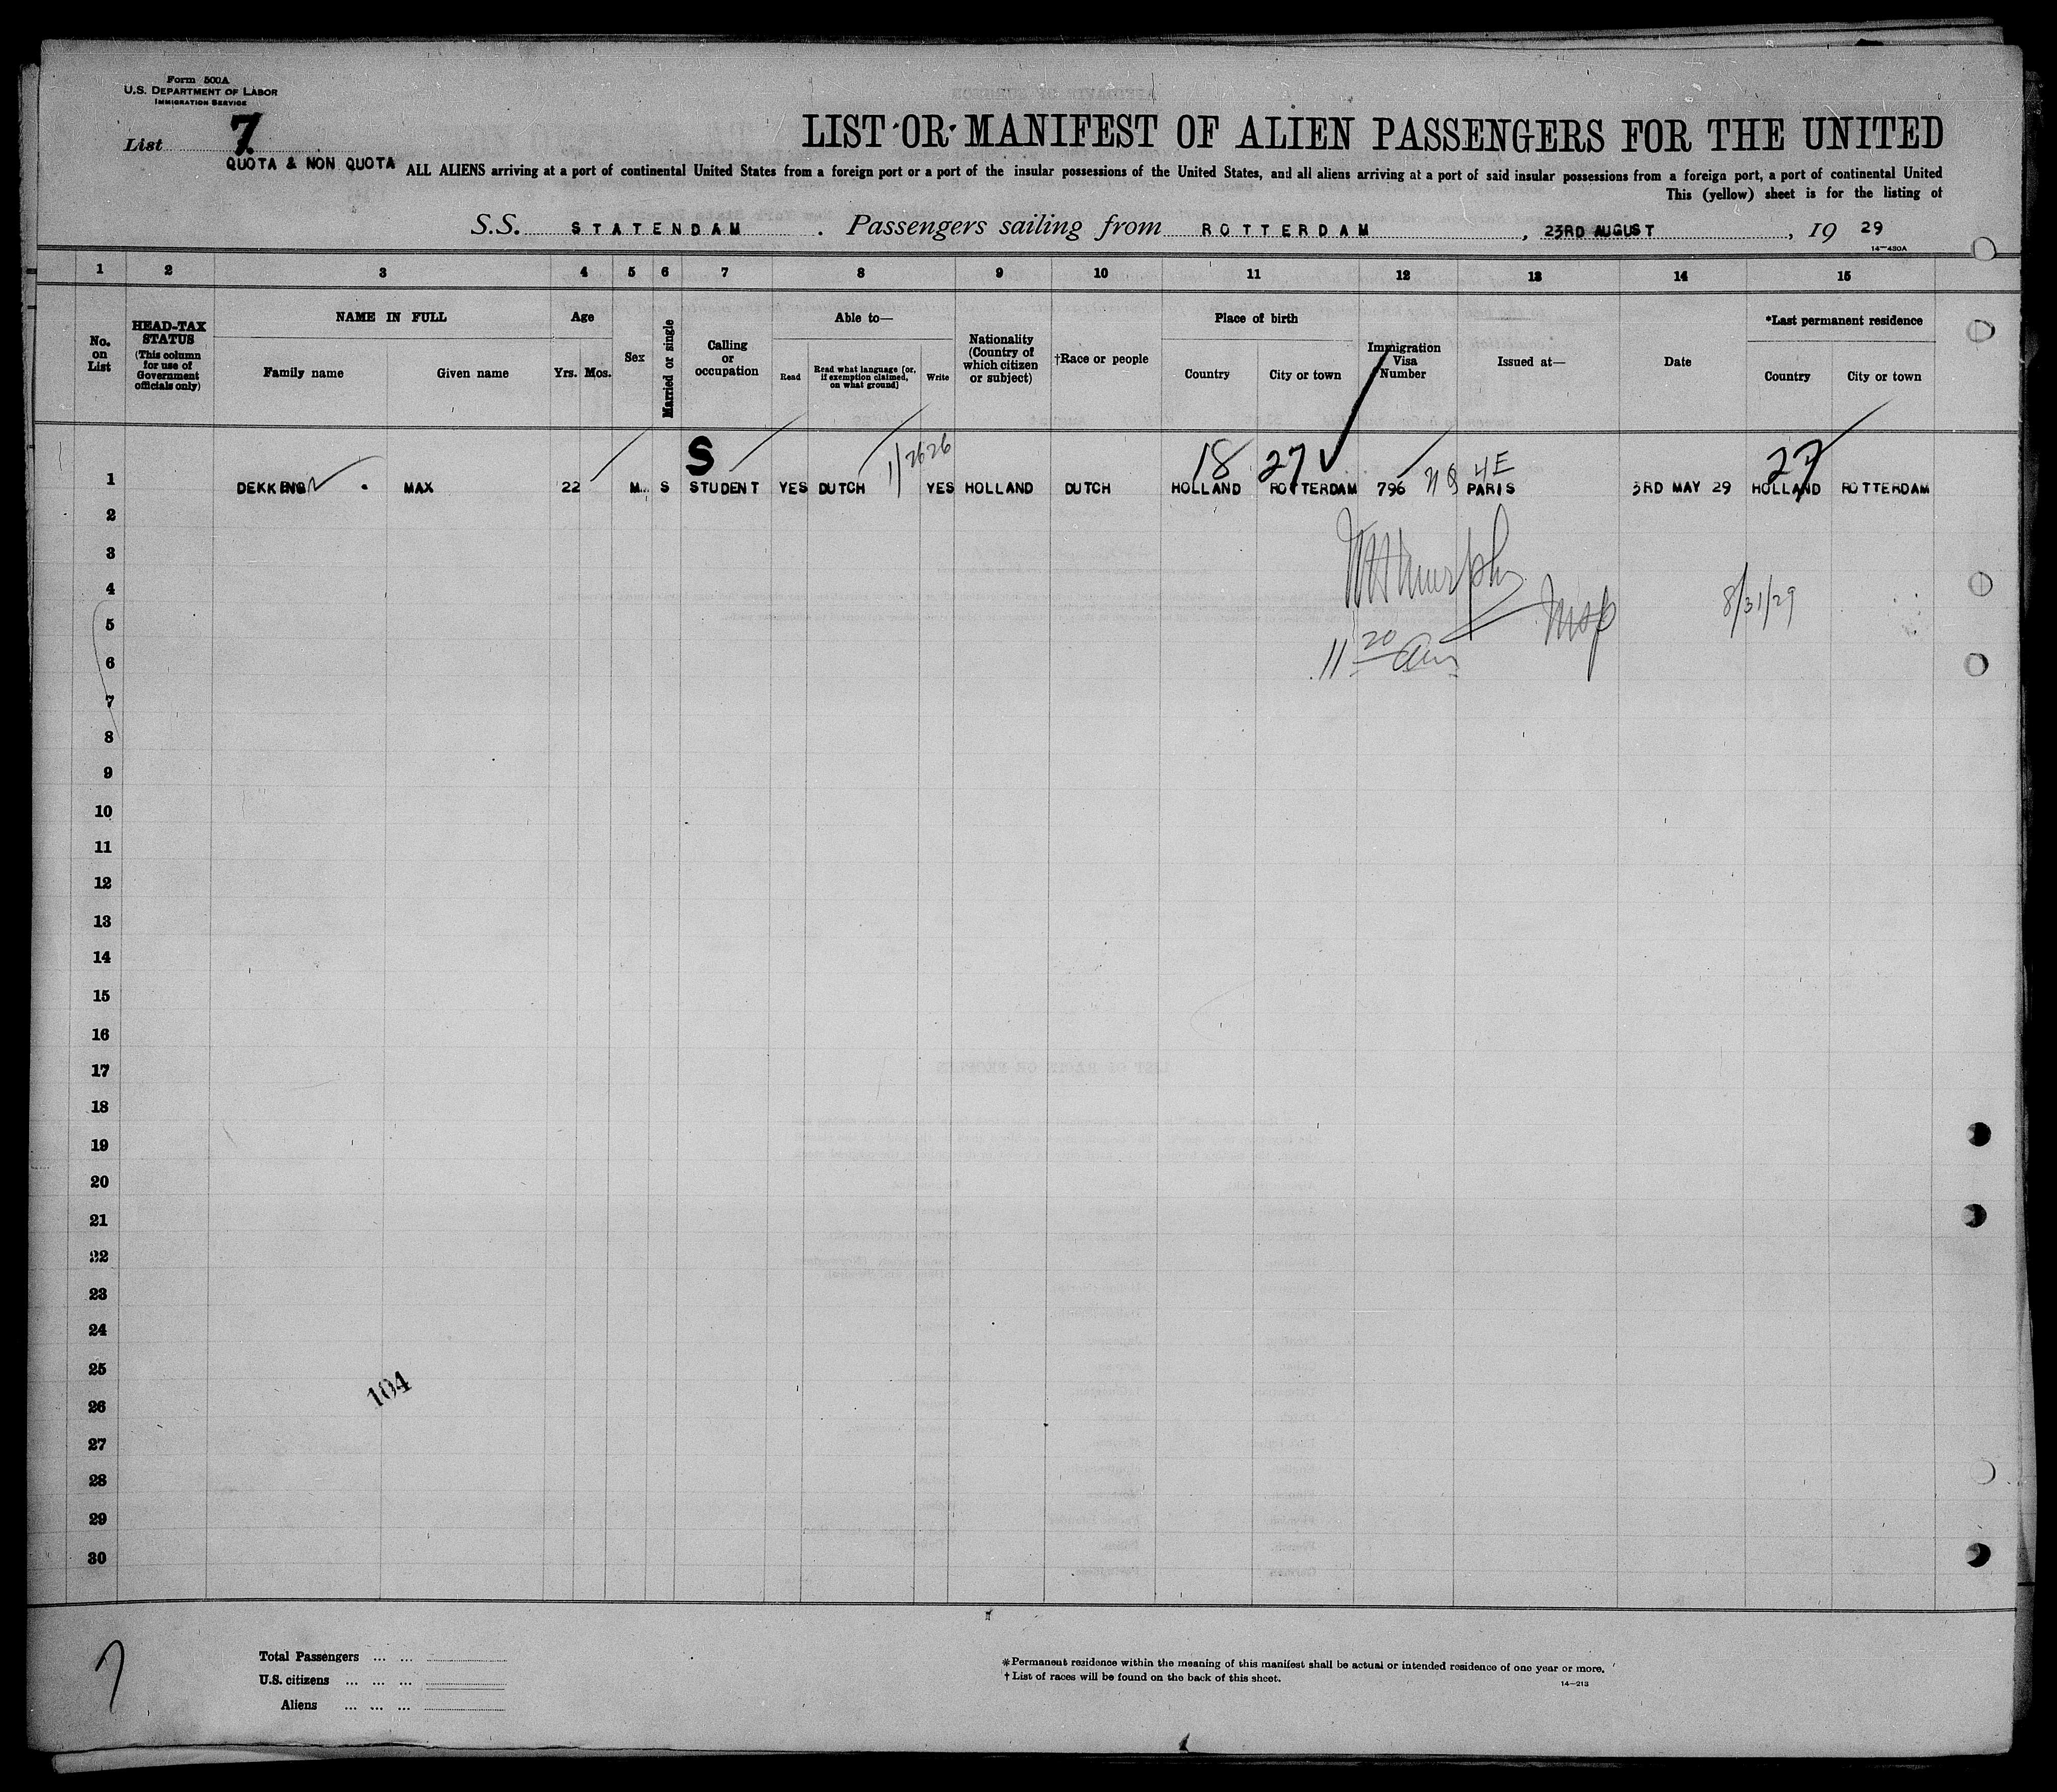 Form 500A
U.S. DEPARTMENT OF LABOR
IMMIGRATION SERVICE
List 7
QUOTA & NON QUOTA
LIST OR MANIFEST OF ALIEN PASSENGERS FOR THE UNITED
ALL ALIENS arriving at a port of continental United States from a foreign port or a port of the insular possessions of the United States, and all aliens arriving at a port of said insular possessions from a foreign port, a port of continental United
This (yellow) sheet is for the listing of
S.S. STATENDAM . Passengers sailing from ROTTERDAM , 23RD AUGUST , 19 29
14—430A
1 2 3 4 5 6 7 8 9 10 11 12 13 14 15
No. on List
HEAD-TAX STATUS (This column for use of Government officials only)
NAME IN FULL
Family name Given name
Age
Yrs. Mos.
Sex
Married or single
Calling or occupation
Able to—
Read Read what language [or, if exemption claimed, on what ground] Write
Nationality (Country of which citizen or subject)
†Race or people
Place of birth
Country City or town
Immigration Visa Number
Issued at—
Date
*Last permanent residence
Country City or town
S 1/2626 18 27 4E 27
1 MAX 22 M. S STUDENT YES DUTCH YES HOLLAND DUTCH HOLLAND ROTTERDAM 796 PARIS 3RD MAY 29 HOLLAND ROTTERDAM
2
3
WH Murphy
4
8/31/29
5
11 20 am
6
7
8
9
10
11
12
13
14
15
16
17
18
19
20
21
22
23
24
25
104
26
27
28
29
30
7
Total Passengers ... ...
U.S. citizens ... ... ...
Aliens ... ... ...
*Permanent residence within the meaning of this manifest shall be actual or intended residence of one year or more.
† List of races will be found on the back of this sheet.
14—213